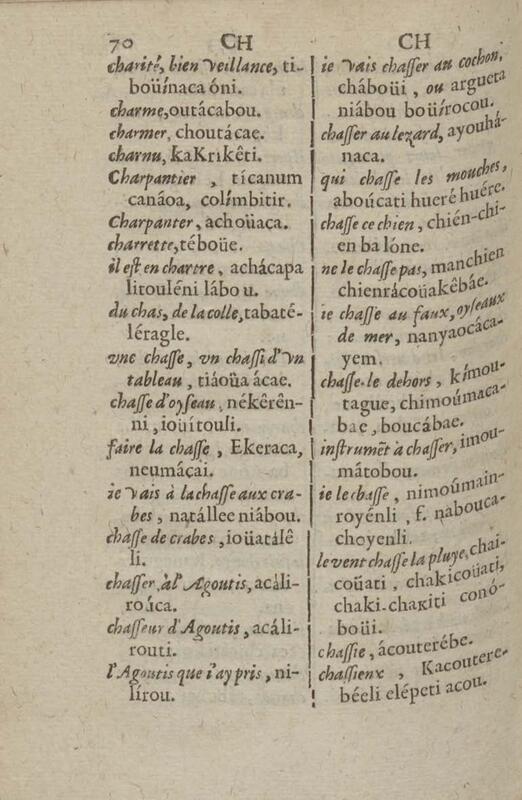 70 CH CH
charité, bien Veillance, ti-
boüínaca óni.
charme, outácabou.
charmer, choutácae.
charnu, kaKrıkêti.
Charpantier , tícanum
canáoa, colímbitir.
Charpanter, achoüaca.
charrette, téboüe.
il est en chartre, achácapa
litouléni lábou.
du chas, de la colle, tabaté-
léragle.
vne chasse, vn chassi d'vn
tableau, tiáoüa ácae.
chasse d'oyseau, nékêrên-
ni, ioüítouli.
faire la chasse, Ekeraca,
neumáçai.
ie Vais à la chasse aux cra-
bes, natállee niábou.
chasse de crabes, ioüatálê
li.
chasser à l'Agoutis, acáli-
roúca.
chasseur d'Agoutis, acáli-
routi.
l'Agoutis que i'ay pris, ni-
lírou.
ie Vais chasser au cochon,
cháboüi, ou argueta
niábou boüírocou.
chasser au lezard, ayouhá-
naca.
qui chasse les mouches,
aboúcati hueré huére.
chasse ce chien, chién-chi-
en ba lóne.
ne le chasse pas, manchien
chienrácoüakêbáe.
ie chasse au faux, oyseaux
de mer, nanyaocáca-
yem.
chasse-le dehors, kímou-
tague, chimoúmaca-
bae, boucábae.
instrumēt à chasser, imou-
mátobou.
ie le chasse, nimoúmain-
royénli, f. nabouca-
choyenli.
le vent chasse la pluye, chai-
coüati, chakicoüati,
chaki-chaкiti conó-
boüi.
chassie, ácouterébe.
chassieux, Kacoutere-
béeli elépeti acou.